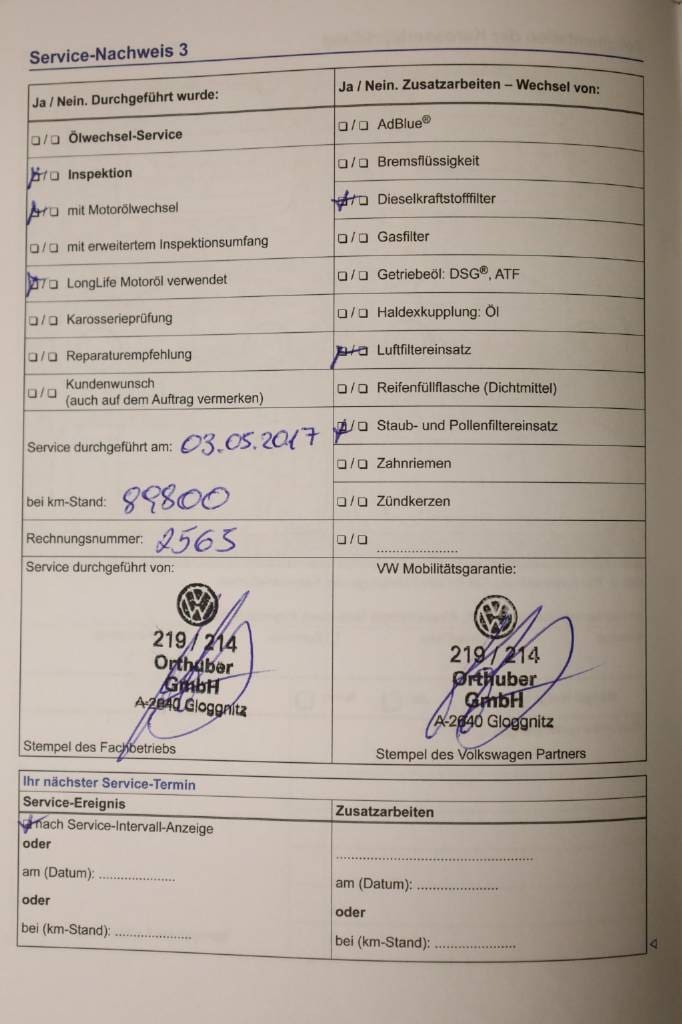 Service-Nachweis 3
Ja / Nein. Durchgeführt wurde:
❑ / ❑ Ölwechsel-Service
❑ / ❑ Inspektion
❑ / ❑ mit Motorölwechsel
❑ / ❑ mit erweitertem Inspektionsumfang
❑ / ❑ LongLife Motoröl verwendet
❑ / ❑ Karosserieprüfung
❑ / ❑ Reparaturempfehlung
❑ / ❑ Kundenwunsch
(auch auf dem Auftrag vermerken)
Service durchgeführt am: 03.05.2017
bei km-Stand: 89800
Rechnungsnummer: 2565
Ja / Nein. Zusatzarbeiten – Wechsel von:
❑ / ❑ AdBlue®
❑ / ❑ Bremsflüssigkeit
❑ / ❑ Dieselkraftstofffilter
❑ / ❑ Gasfilter
❑ / ❑ Getriebeöl: DSG®, ATF
❑ / ❑ Haldexkupplung: Öl
❑ / ❑ Luftfiltereinsatz
❑ / ❑ Reifenfüllflasche (Dichtmittel)
❑ / ❑ Staub- und Pollenfiltereinsatz
❑ / ❑ Zahnriemen
❑ / ❑ Zündkerzen
❑ / ❑ ......................
Service durchgeführt von:
VW
219 / 214
Orthuber
GmbH
A-2640 Gloggnitz
Stempel des Fachbetriebs
VW Mobilitätsgarantie:
VW
219 / 214
Orthuber
GmbH
A-2640 Gloggnitz
Stempel des Volkswagen Partners
Ihr nächster Service-Termin
Service-Ereignis
❑ nach Service-Intervall-Anzeige
oder
am (Datum): ....................
oder
bei (km-Stand): ....................
Zusatzarbeiten
......................................................
am (Datum): ......................
oder
bei (km-Stand): ......................